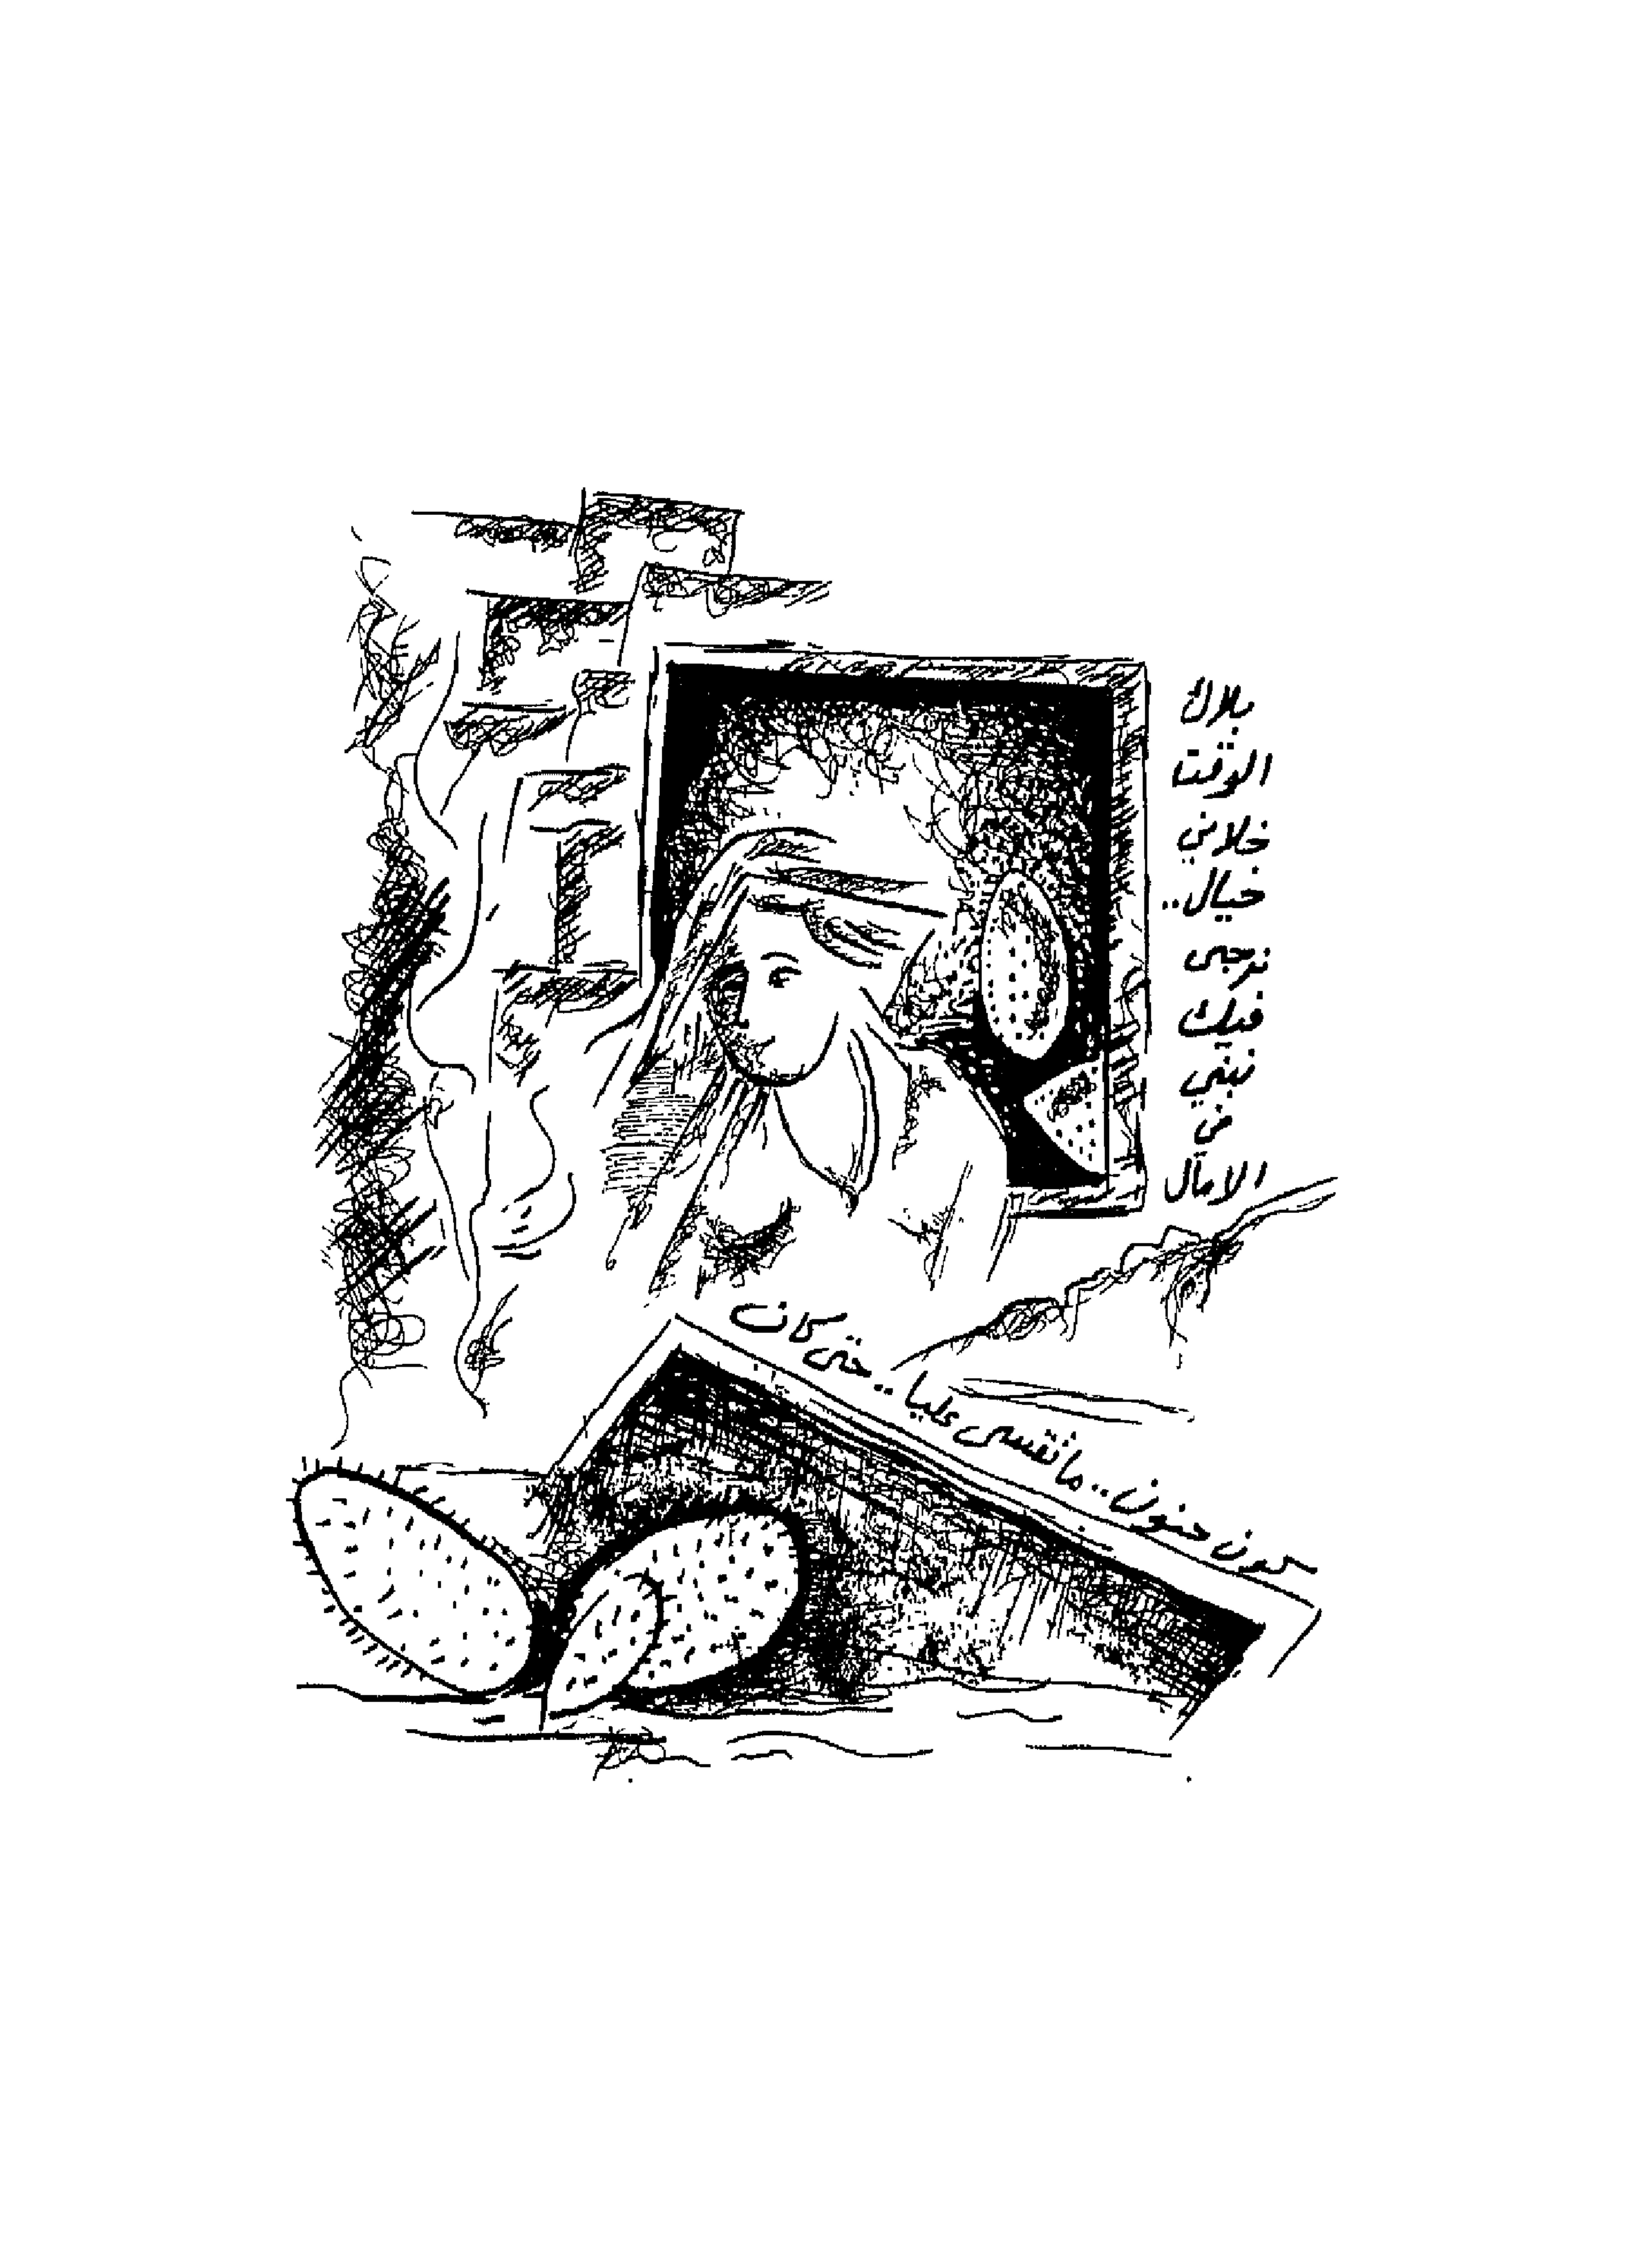 بلاك
الوقت
خلاني
خيال..
نرجى
فيك
نبني
في
الامال
كون حنون.. ما تقسى عليا.. حتى كان